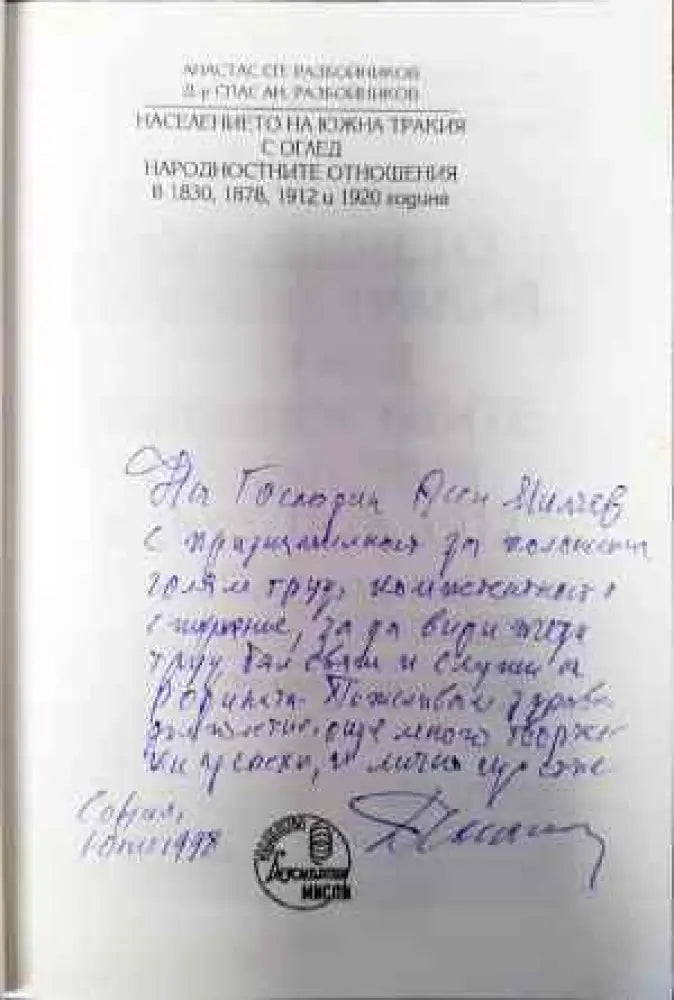 АНАСТАС СП. РАЗБОЙНИКОВ
Д-р СПАС АН. РАЗБОЙНИКОВ
НАСЕЛЕНИЕТО НА ЮЖНА ТРАКИЯ
С ОГЛЕД
НАРОДНОСТНИТЕ ОТНОШЕНИЯ
в 1830, 1878, 1912 и 1920 година
На Господин Асен Милчев
с признателност за положения
голям труд, компетентност и
старание, за да види
труд бял свят и служи на
Родината. Пожелавам здраве
дълголетие, още много творчес
ки успехи, и лично
София,
1998
МИСЪЛ